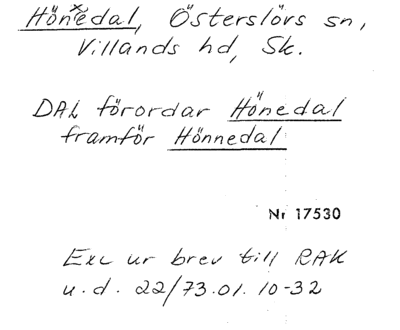 Hönedal, Österslövs sn,
Villands hd, Sk.
DAL förordar Hönedal
framför Hönnedal
Nr 17530
Exc ur brev till RAK
u.d. 22/73.01.10-32